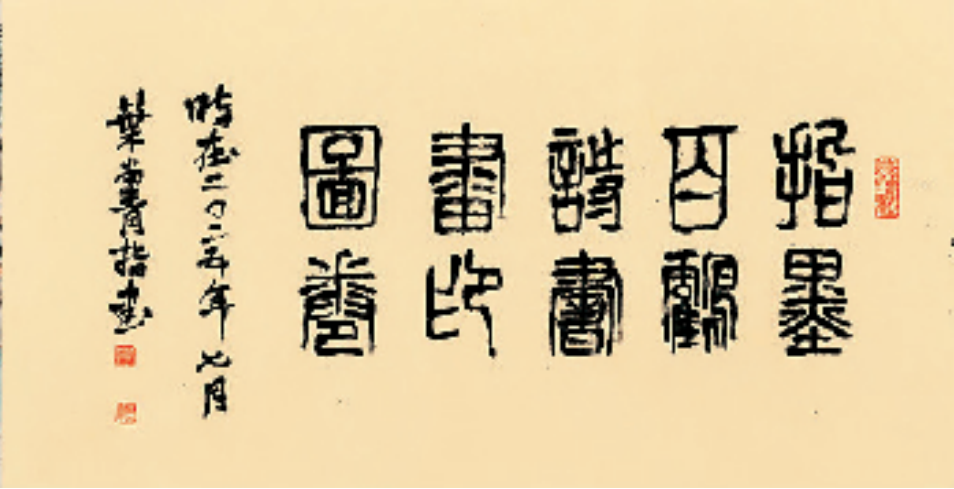 指墨
百鶴
詩書
畫印
圖卷
時在二〇二五年七月
葉尚青指書